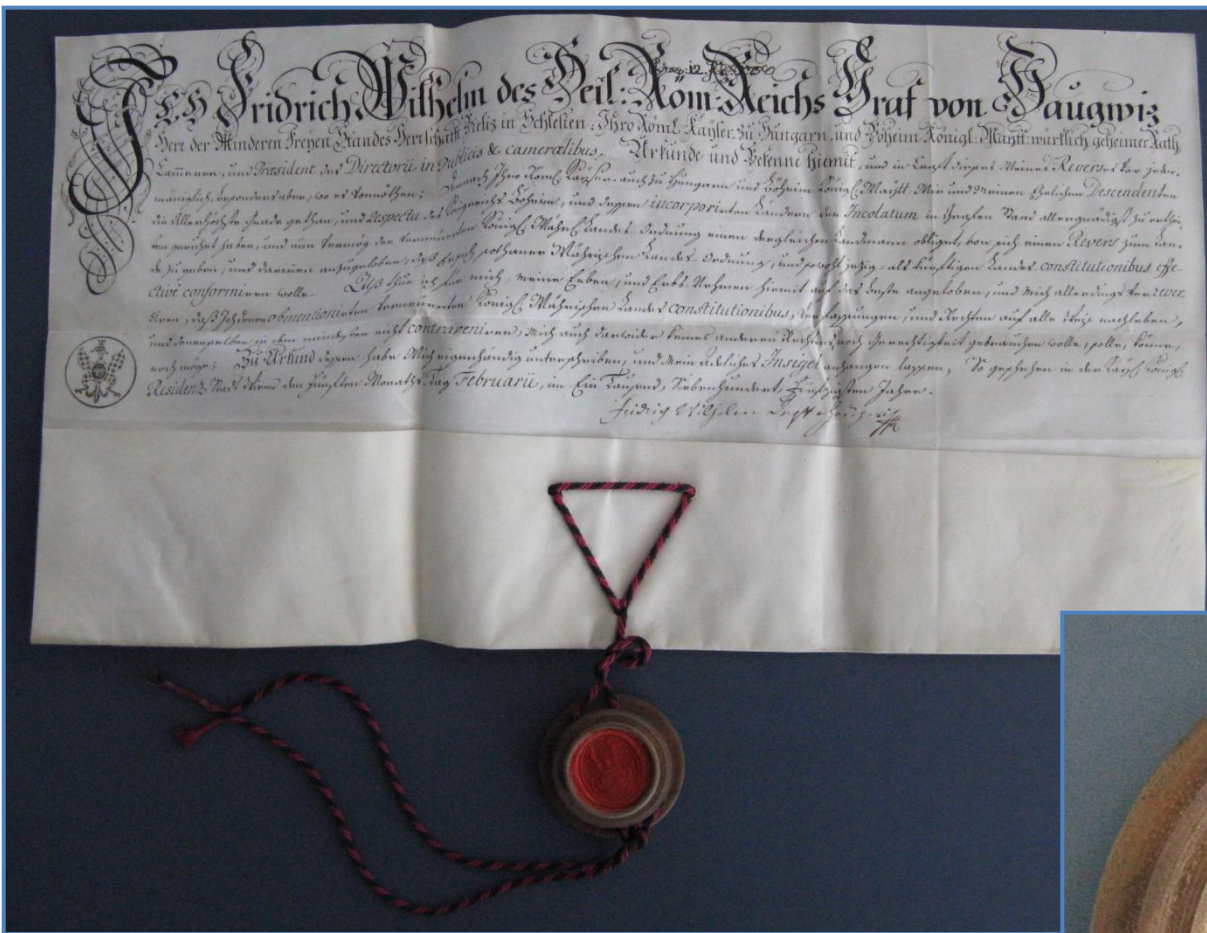 Ich Fridrich Wilhelm des Heil: Röm: Reichs Graf von Haugwiz
Herr der Minderen Freyen Standes Herrschafft Bieliz in Schlesien, Ihro Röml: Kayser: zu Hungarn, und Böheim Königl: Maytt: würklich geheimer Rath
Cammerer, und Præsident des Directorii in Publicis & cameralibus. Urkunde und Bekenne hiemit, und in Krafft dieses Meines Reverses vor jeder-
mäniglich, besonders aber, wo es vonnöthen; Demnach Ihro Röml: Kayser: auch zu Hungarn und Böheim Königl: Maytt: Mir und Meinen Ehelichen Descendenten
die Allerhöchste Gnade gethan, und Respectu des Königreichs Böheim, und dessen incorporirten Landern den Incolatum in Grafen Stand allergnädigst zu erthei-
len geruhet haben, und nun vermög der vernewerten Königl: Mähr: Landes Ordnung einen dergleichen Landmann obliget, von sich einen Revers zum Lan-
de zu geben, und darinnen anzugeloben, daß Er sich sothaner Mährischen Landes Ordnung, und sowohl jezig- als künfftigen Landes constitutionibus effe-
ctivè conformiren wolle. Alß thue ich für mich, meine Erben, und Erbs Nehmen hiemit auf das beste angeloben, und mich allerdings rever-
siren, daß Ich denen obmentionirten vernewerten Königl: Mährischen Landes constitutionibus, Verfassungen, und Rechten auf alle Weise nachleben,
und denenselben in dem mindesten nicht contraveniren, mich auch darwider keines anderen Rechtens noch Gerechtigkeit gebrauchen wolle, solle, könne,
noch möge; Zu Urkund dessen habe Mich eigenhändig unterschrieben, und Mein Adeliches Insigel anhangen lassen, So geschehen in der Kayl: Königl:
Residenz Stadt Wienn den Fünfften Monaths Tag Februarii, in Ein Tausend, Siebenhundert, Funfzigsten Jahre.
Fridrich Wilhelm Haugwiz